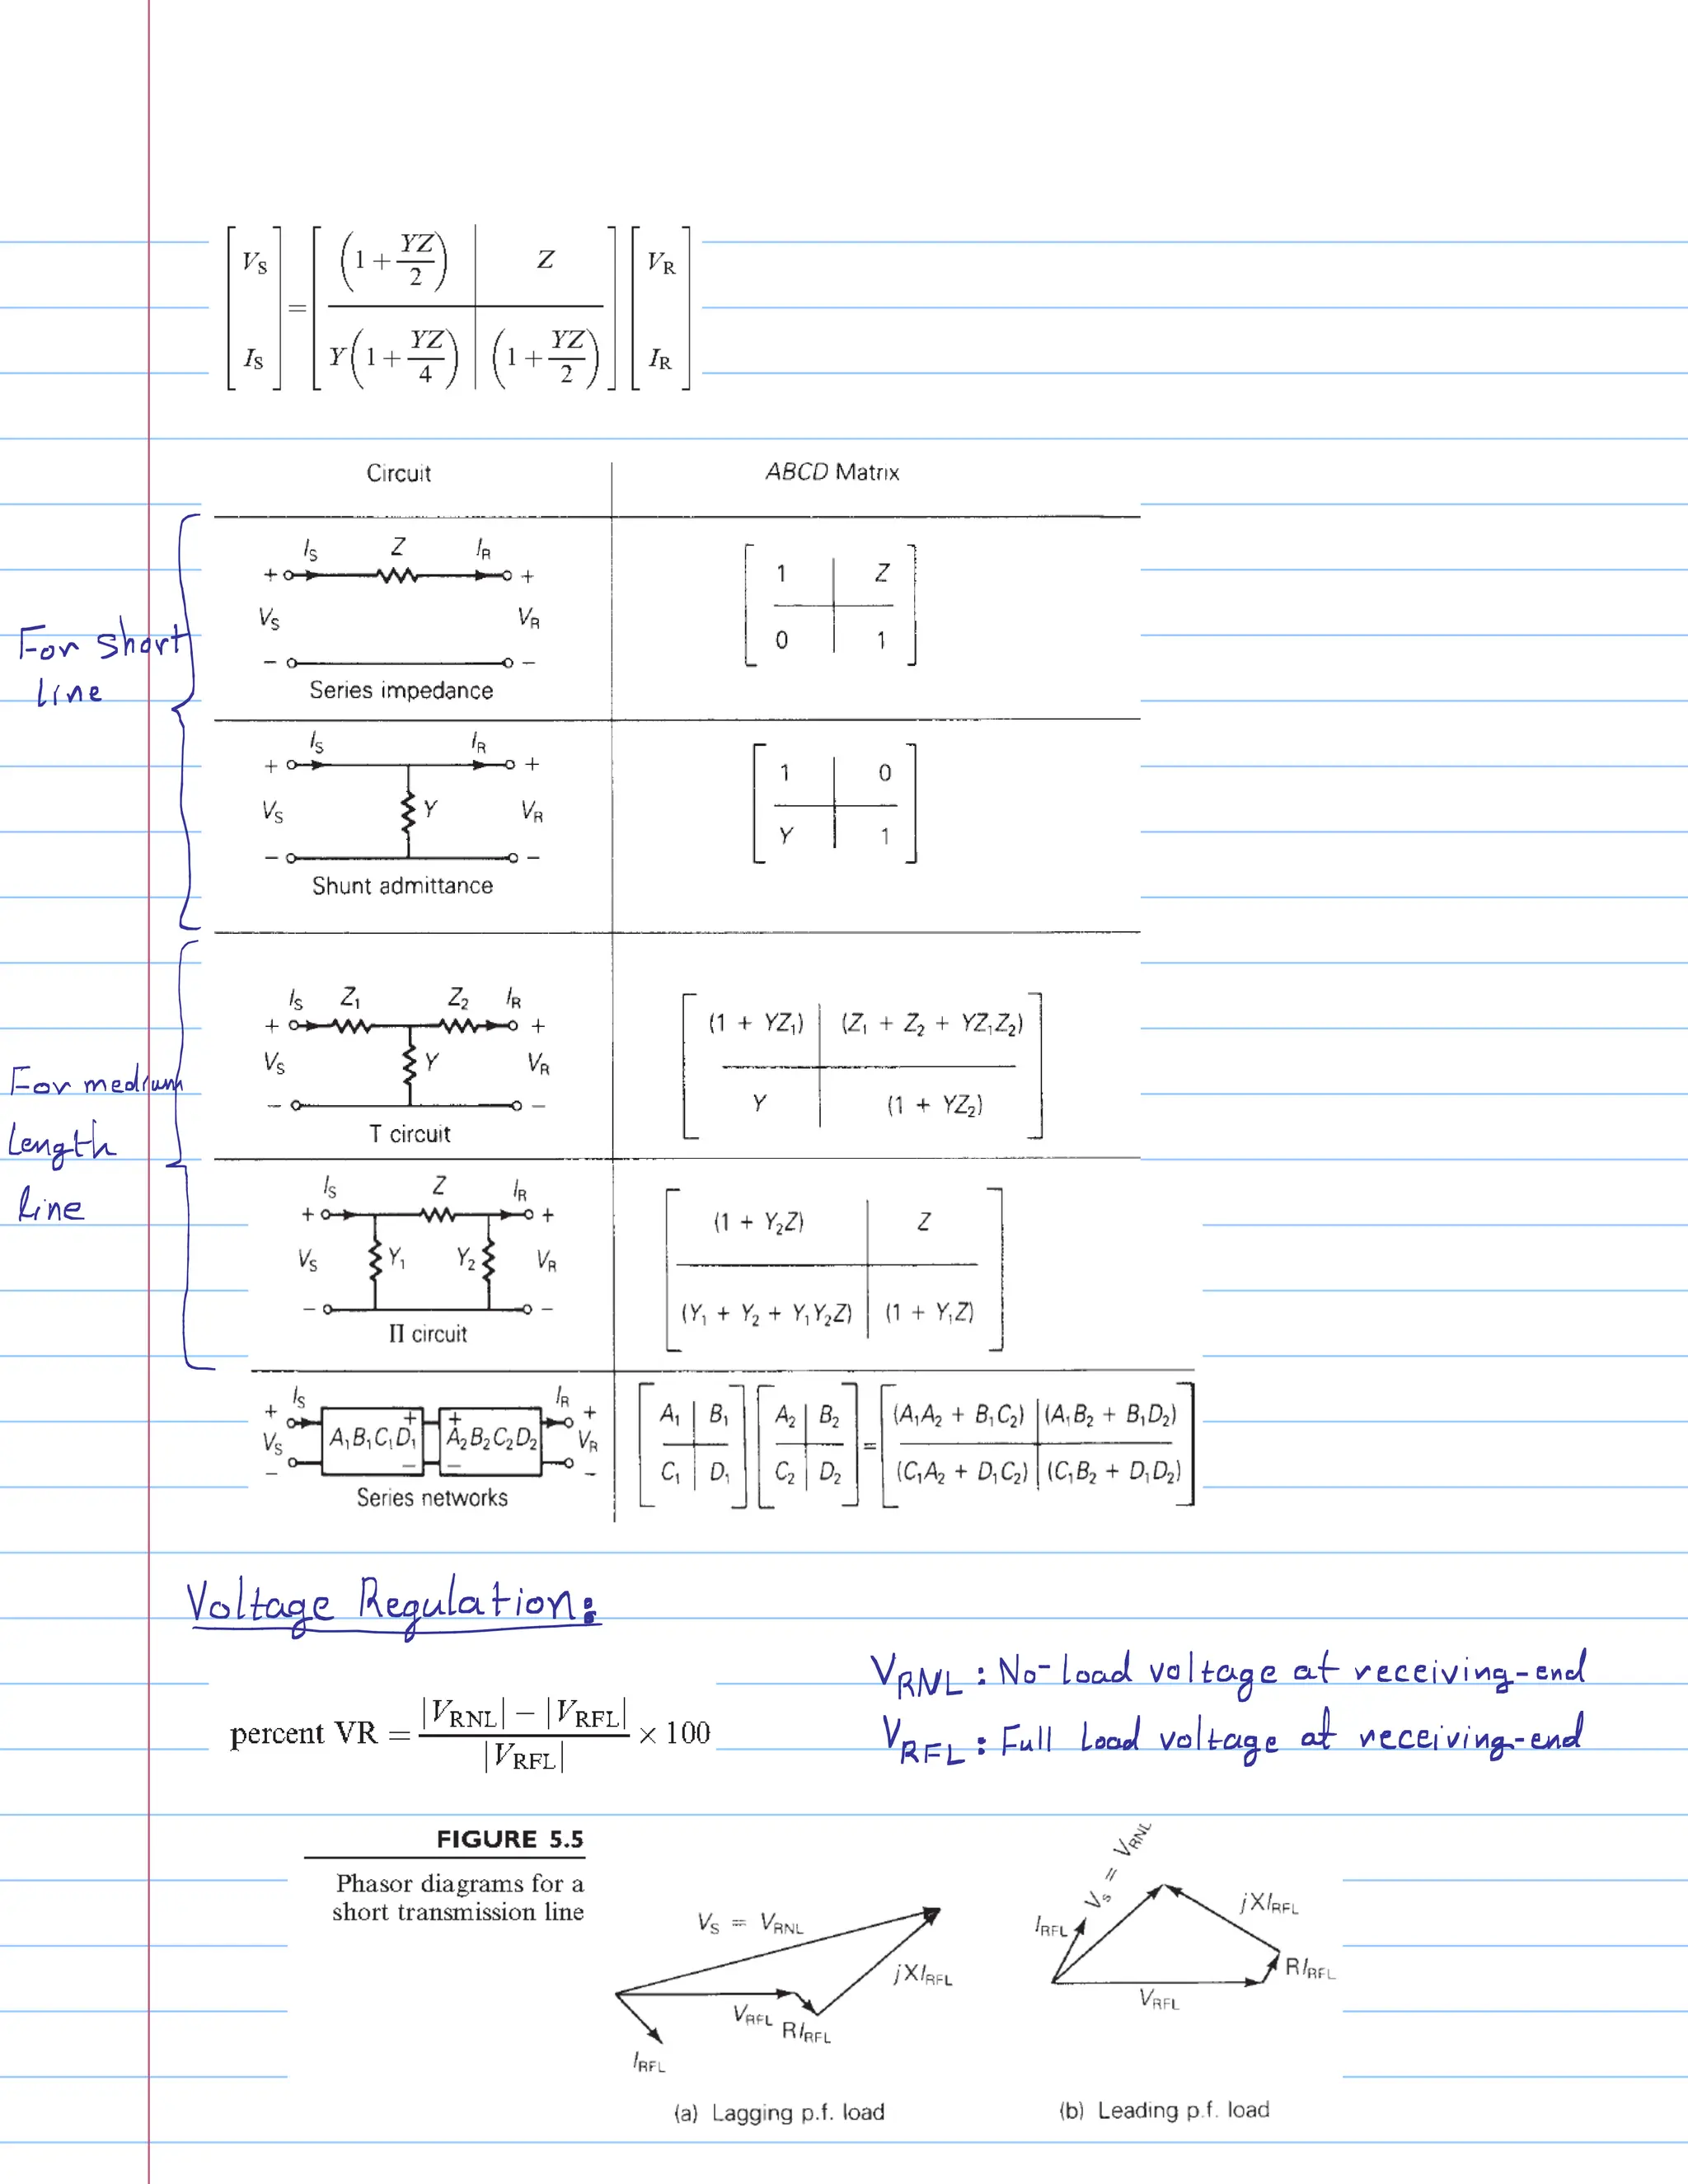 [V_S; I_S] = [(1 + YZ/2) | Z; Y(1 + YZ/4) | (1 + YZ/2)] [V_R; I_R]
Circuit ABCD Matrix
For short
line
I_S Z I_R
+ +
V_S V_R
- -
Series impedance
[1 | Z; 0 | 1]
I_S I_R
+ +
V_S Y V_R
- -
Shunt admittance
[1 | 0; Y | 1]
For medium
length
line
I_S Z_1 Z_2 I_R
+ +
V_S Y V_R
- -
T circuit
[(1 + YZ_1) | (Z_1 + Z_2 + YZ_1Z_2); Y | (1 + YZ_2)]
I_S Z I_R
+ +
V_S Y_1 Y_2 V_R
- -
Π circuit
[(1 + Y_2Z) | Z; (Y_1 + Y_2 + Y_1Y_2Z) | (1 + Y_1Z)]
I_S I_R
+ + + +
V_S A_1B_1C_1D_1 A_2B_2C_2D_2 V_R
- - - -
Series networks
[A_1 | B_1; C_1 | D_1] [A_2 | B_2; C_2 | D_2] = [(A_1A_2 + B_1C_2) | (A_1B_2 + B_1D_2); (C_1A_2 + D_1C_2) | (C_1B_2 + D_1D_2)]
Voltage Regulation:
percent VR = (|V_RNL| − |V_RFL|) / |V_RFL| × 100
V_RNL : No-load voltage at receiving-end
V_RFL : Full load voltage at receiving-end
FIGURE 5.5
Phasor diagrams for a
short transmission line
V_S = V_RNL
jXI_RFL
V_RFL
RI_RFL
I_RFL
(a) Lagging p.f. load
V_S = V_RNL
I_RFL
jXI_RFL
RI_RFL
V_RFL
(b) Leading p.f. load